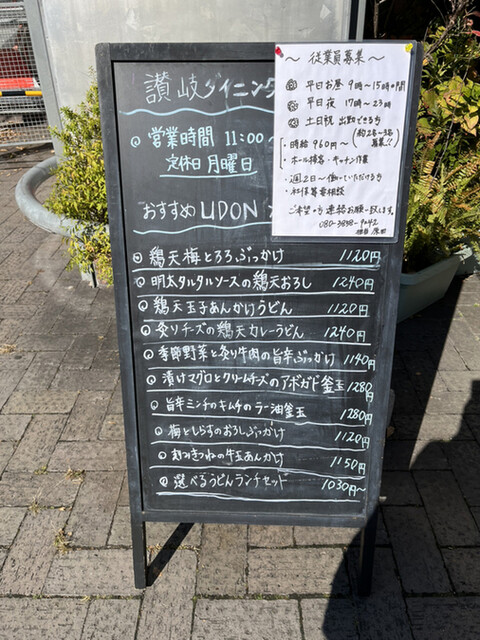 讃岐ダイニング
営業時間 11:00〜
定休日 月曜日
おすすめUDON
鶏天梅とろろぶっかけ 1120円
明太タルタルソースの鶏天おろし 1240円
鶏天玉子あんかけうどん 1120円
炙りチーズの鶏天カレーうどん 1240円
季節野菜と炙り牛肉の旨辛ぶっかけ 1140円
漬けマグロとクリームチーズのアボガド釜玉 1280円
旨辛ミンチのキムチのラー油釜玉 1280円
梅としらすのおろしぶっかけ 1120円
刻みきつねの牛玉あんかけ 1150円
選べるうどんランチセット 1030円〜
〜従業員募集〜
平日お昼 9時〜15時の間
平日夜 17時〜23時
土日祝 出勤できる方
(約2名〜3名募集!!)
・時給 960円〜
・ホール接客・キッチン作業
・週2日〜働いていただける方
・社保等要相談
ご希望の方 連絡お願い致します。
080-3858-9042